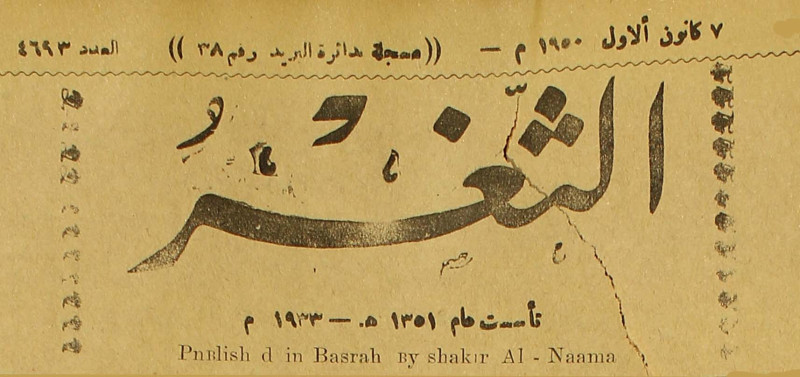 ٧ كانون ألاول ١٩٥٠ م — ((مسجلة بدائرة البريد رقم ٣٨)) العدد ٤٦٩٣
الثغر
تأسست عام ١٣٥١ ه. — ١٩٣٣ م
Pnblish d in Basrah By shakir Al - Naama